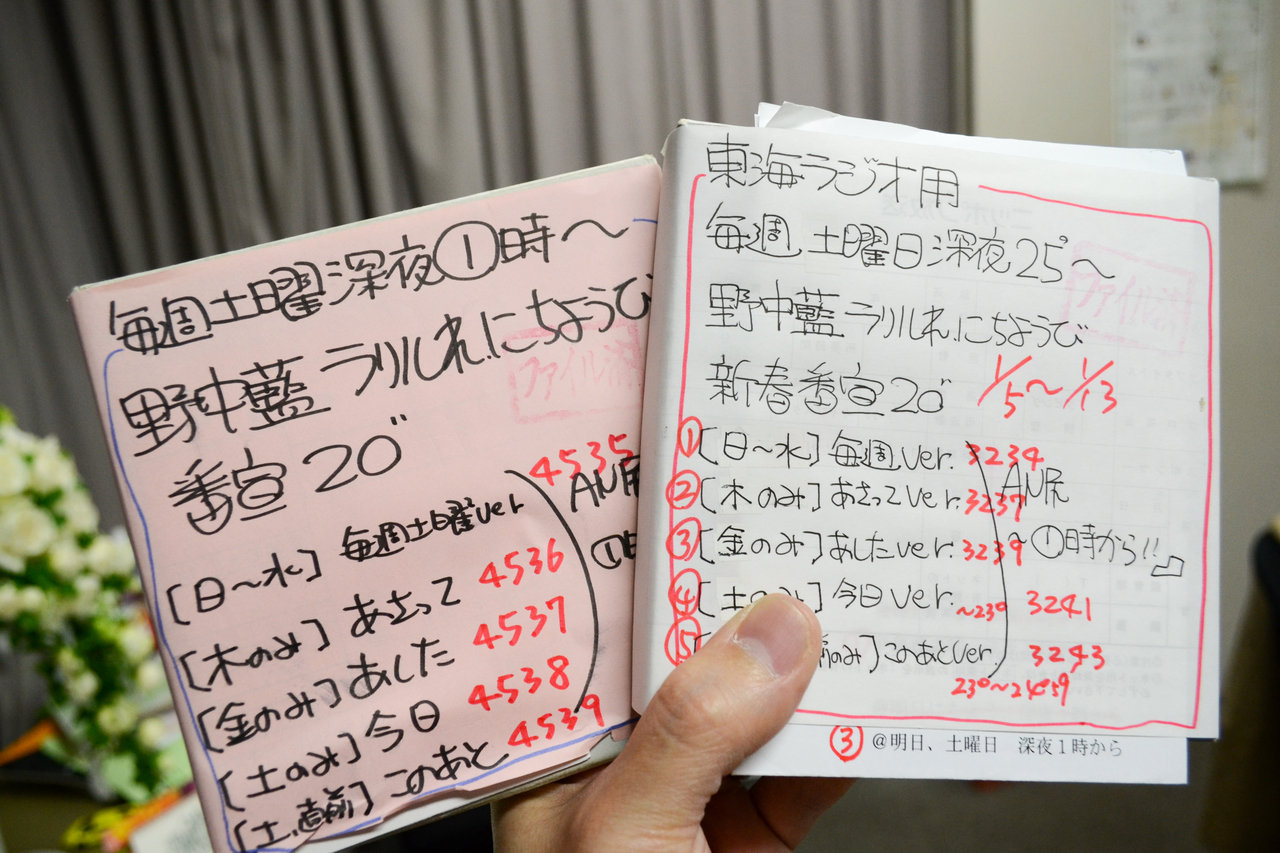 毎週土曜深夜①時〜
野中藍 ラリルれ.にちようび
ファイル済
番宣20"
[日〜水] 毎週土曜ver 4535
[木のみ] あさって 4536
[金のみ] あした 4537
[土のみ] 今日 4538
[土.直前] このあと 4539
AN尻
①時
東海ラジオ用
毎週 土曜日深夜25°〜
野中藍 ラリルれ.にちようび
ファイル済
新春番宣20" 1/5〜1/13
①[日〜水] 毎週ver. 3234
②[木のみ] あさってver. 3237
③[金のみ] あしたver. 3239
④[土のみ] 今日ver. 〜23° 3241
⑤ 前のみ] このあとver. 3243
23°〜2459
AN尻
〜①時から!!
③ @明日、土曜日 深夜1時から